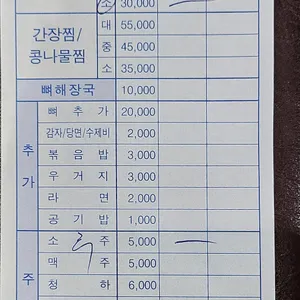 소 30,000
간장찜/콩나물찜 대 55,000
중 45,000
소 35,000
뼈해장국 10,000
추가 뼈추가 20,000
감자/당면/수제비 2,000
볶음밥 3,000
우거지 3,000
라면 2,000
공기밥 1,000
주 소주 5,000
맥주 5,000
청하 6,000